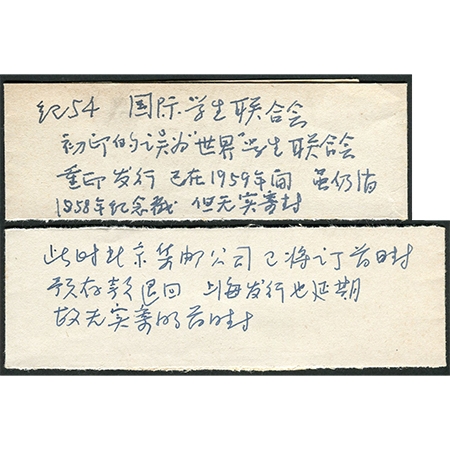 纪54 国际学生联合会
初印的误为"世界"学生联合会
重印发行 已在1959年间 虽仍盖
1958年纪念戳 但无实寄封
此时北京集邮公司已将订首日封
预存款退回 上海发行也延期
故无实寄的首日封